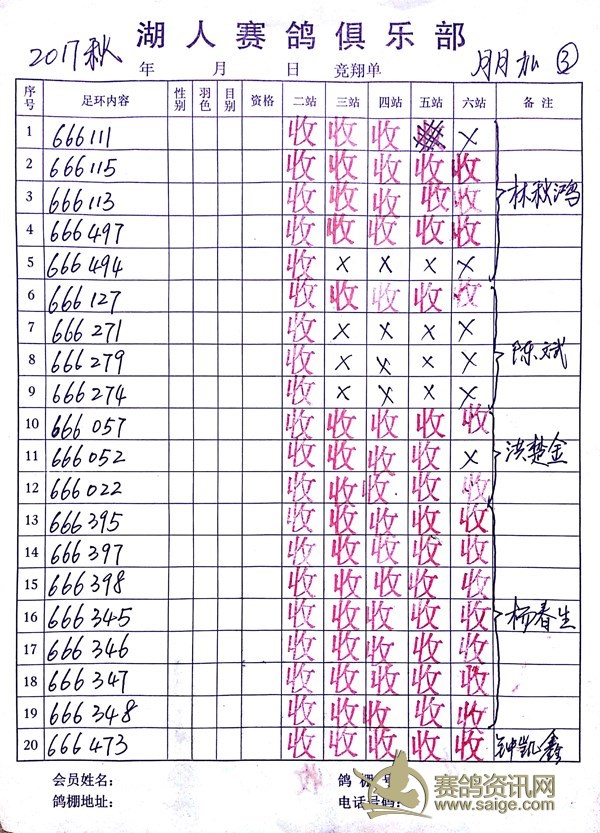 湖人赛鸽俱乐部
2017秋 年 月 日 竞翔单 ③
序号 足环内容 性别 羽色 目别 资格 二站 三站 四站 五站 六站 备注
1 666111 收 收 收 x
2 666115 收 收 收 收 收
3 666113 收 收 收 收 收 林秋鸿
4 666497 收 收 收 收 收
5 666494 收 x x x x
6 666127 收 收 收 收 收
7 666271 收 x x x x
8 666279 收 x x x x 陈斌
9 666274 收 x x x x
10 666057 收 收 收 收 收
11 666052 收 收 收 收 x 洪楚金
12 666022 收 收 收 收 收
13 666395 收 收 收 收 收
14 666397 收 收 收 收 收
15 666398 收 收 收 收 收
16 666345 收 收 收 收 收 杨春生
17 666346 收 收 收 收 收
18 666347 收 收 收 收 收
19 666348 收 收 收 收 收
20 666473 收 收 收 收 收 钟凯鑫
会员姓名: 鸽棚号:
鸽棚地址: 电话号码:
赛鸽资讯网
www.saige.com